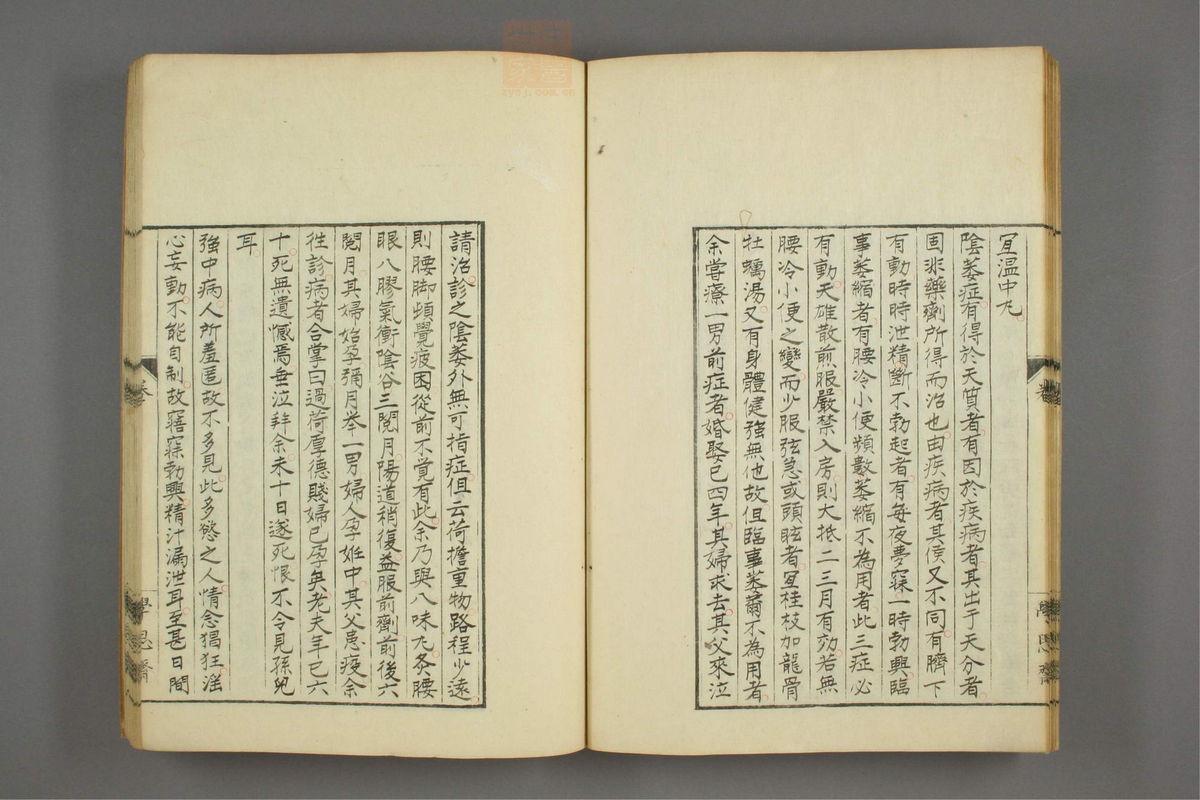 宜温中丸
陰萎症有得於天質者有因於疾病者其出于天分者
固非藥劑所得而治也由疾病者其侯又不同有臍下
有動時時泄精斷不勃起者有每夜夢寐一時勃興臨
事萎縮者有腰冷小便頻數萎縮不為用者此三症必
有動天雄散煎服嚴禁入房則大抵二三月有効若無
腰冷小便之變而少服弦急或頭眩者宜桂枝加龍骨
牡蠣湯又有身體健強無他故但臨事萎薾不為用者
余嘗療一男前症者婚娶已四年其婦求去其父來泣
請治診之陰萎外無可指症但云荷擔重物路程少遠
則腰脚頓覺疲困從前不覚有此余乃與八味丸灸腰
眼八膠氣衝陰谷三閲月陽道稍復益服前劑前後六
閲月其婦始孕彌月举一男婦人孕姙中其父患疫余
徃診病者合掌曰過荷厚德賤婦已孕矣老夫年已六
十死無遺憾焉垂泣拜余未十日遂死恨不令見孫兒
耳
強中病人所羞匿故不多見此多慾之人情念猖狂淫
心妄動不能自制故寤寐勃興精汁漏泄耳至甚日間
卷
學思齋
學思齋
zycj.com.cn